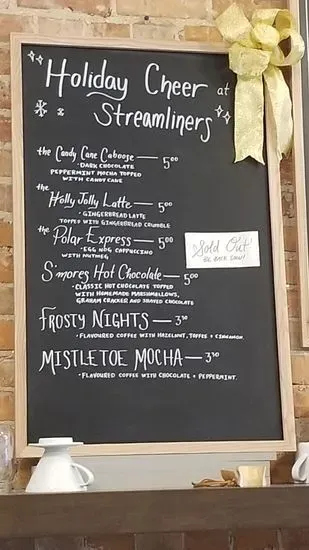 Holiday Cheer at
Streamliners
the Candy Cane Caboose — 5⁰⁰
• DARK CHOCOLATE
PEPPERMINT MOCHA TOPPED
WITH CANDY CANE
the
Holly Jolly Latte — 5⁰⁰
• GINGERBREAD LATTE
TOPPED WITH GINGERBREAD CRUMBLE
the
Polar Express — 5⁰⁰
• EGG NOG CAPPUCCINO
WITH NUTMEG
Sold Out!
BE BACK SOON!
S'mores Hot Chocolate — 5⁰⁰
• CLASSIC HOT CHOCOLATE TOPPED
WITH HOMEMADE MARSHMALLOWS,
GRAHAM CRACKER AND SHAVED CHOCOLATE
FROSTY NIGHTS — 3⁵⁰
• FLAVOURED COFFEE WITH HAZELNUT, TOFFEE + CINNAMON.
MISTLETOE MOCHA — 3⁵⁰
• FLAVOURED COFFEE WITH CHOCOLATE + PEPPERMINT.